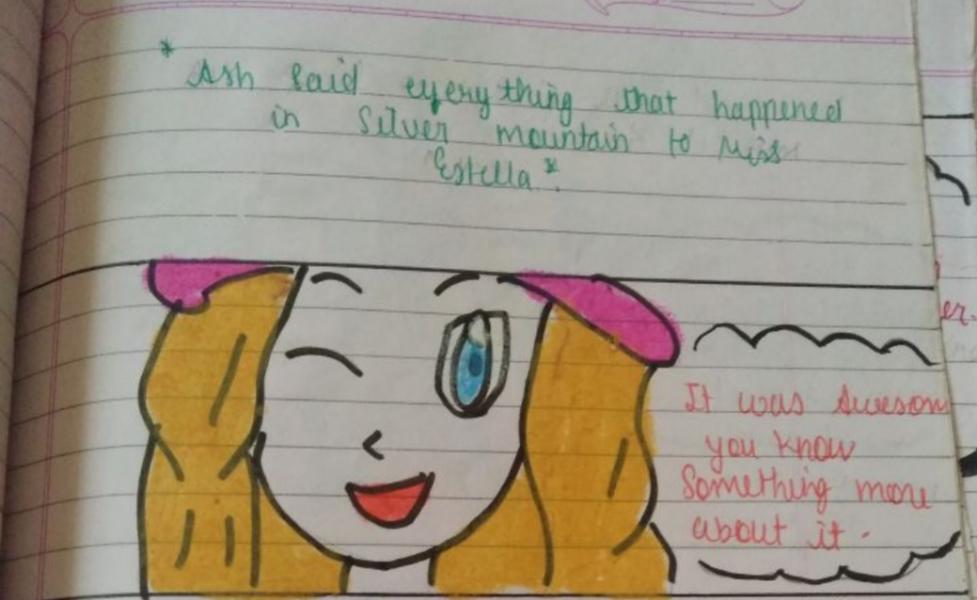 * Ash said everything that happened
in Silver mountain to Miss
Estella *.
It was Awesom
you know
something more
about it.
er.